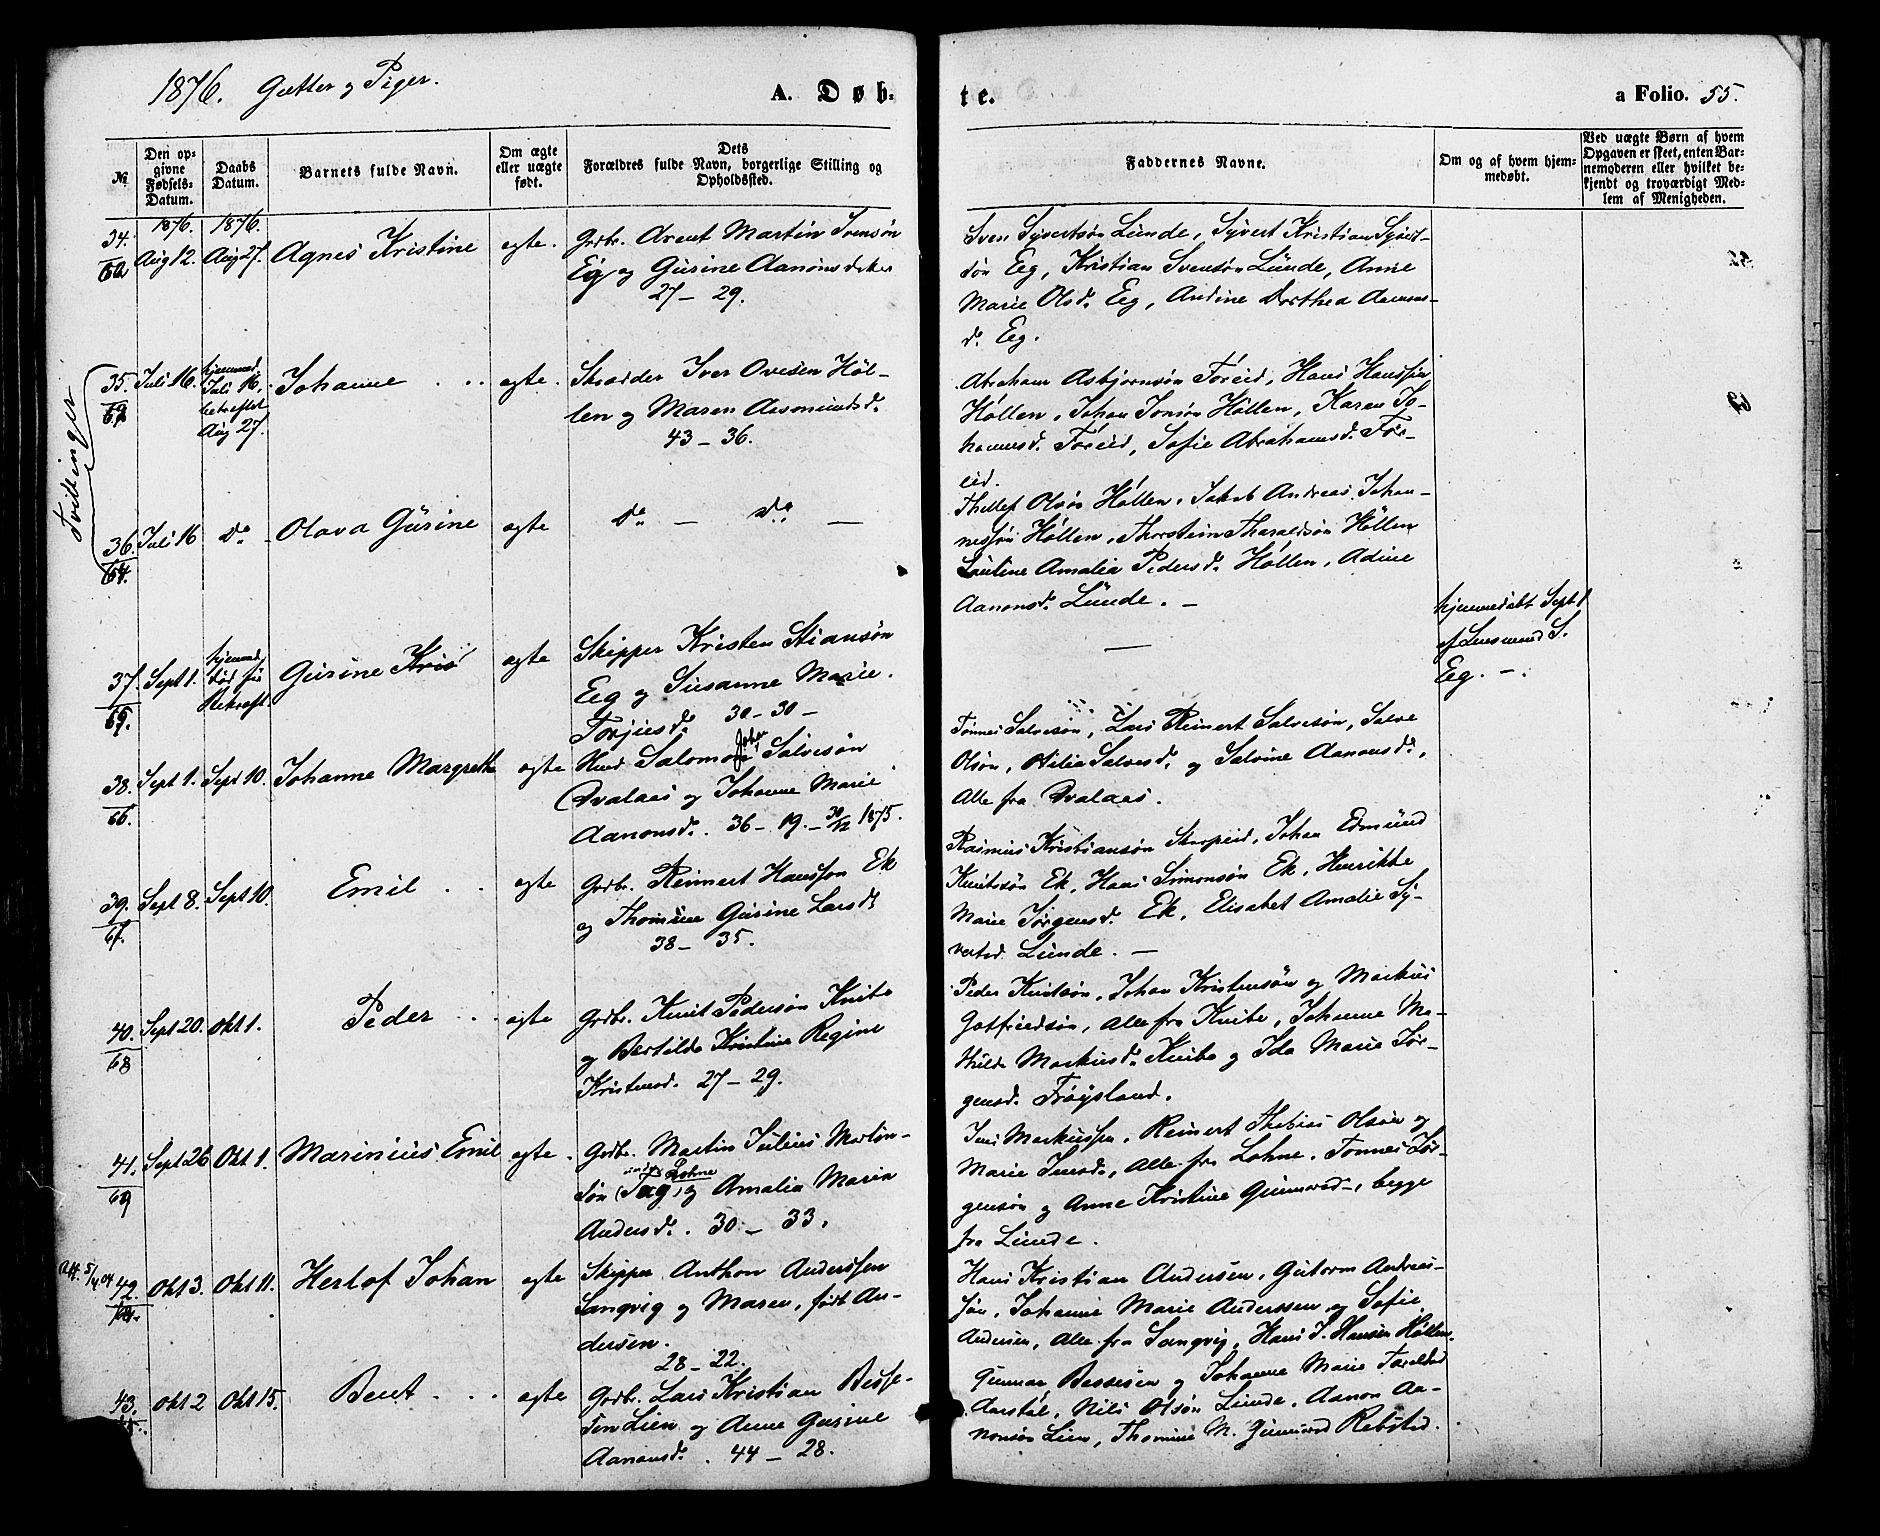 1876. Gutter og Piger.
A. Døb-
te.
a Folio. 55.
No
Den op-
givne
Fødsels-
Datum.
Daabs
Datum.
Barnets fulde Navn.
Om ægte
eller uægte
født.
Dets
Forældres fulde Navn, borgerlige Stilling og
Opholdssted.
Faddernes Navne.
Om og af hvem hjem-
medøbt.
Ved uægte Børn af hvem
Opgaven er skeet, enten Bar-
nemoderen eller hvilket be-
kjendt og troværdigt Med-
lem af Menigheden.
1876. 1876.
34. Aug 12. Aug 27. Agnes Kristine ægte. Grdbr. Arent Martin Svensøn
Eig og Gusine Aanonsd.
27 - 29.
Sven Syvertsøn Lunde, Syvert Kristian Syvert-
søn Eeg, Kristian Svensøn Lunde, Anne
Marie Olsd. Eeg, Andine Dorthea Aanons-
d. Eeg.
Tvillinger
35. Juli 16. hjemmed.
Juli 16.
bekræftet
Aug 27.
Johanne ægte. Skrædder Iver Ovesen Høl-
len og Maren Aasmundsd.
43 - 36.
Abraham Asbjørnsøn Føreid, Hans Hanssøn
Høllen, Johan Jonsøn Høllen, Karen Jo-
hannesd. Føreid, Sofie Abrahamsd. Før-
eid.
36. 64. Juli 16 Do Olava Gusine ægte Do - Do -
Thellef Olsøn Høllen, Jakob Andreas Johan-
nessøn Høllen, Thorstein Tharaldsøn Høllen
Lauline Amalia Pedersd. Høllen, Adine
Aanonsd. Lunde. -
37. 65. Sept 1. hjemmed.
Gusine Kris ægte Skipper Kristen Stiansøn
Eeg og Susanne Marie
Torjusd. 30 - 30 -
-
hjemmedøbt Sept 1
af Lensmand S.
Eeg. -.
38. 66. Sept 1. Sept 10. Johanne Margrethe ægte Salomon Johan Salvesøn
Dvalaas og Johanne Marie
Aanonsd. 36 - 19. - 30/12 1875.
Tønnes Salvesøn, Lars Reinert Salvesøn, Salve
Olsøn, Salvesd. og Salvine Aanonsd.,
Alle fra Dvalaas.
39. 67. Sept 8. Sept 10. Emil ægte Grdbr. Reinert Hanssøn Ek
og Thomine Gusine Larsd.
38 - 35.
Rasmus Kristiansøn Skarpeid, Johan Edmund
Knutsøn Ek, Hans Simonsøn Ek, Henrikke
Marie Jørgensd. Ek, Elisabet Amalie Sy-
vertsd. Lunde. -
40. 68 Sept 20. Okt 1. Peder ægte Grdbr. Knut Pedersøn Knibe
og Bertilde Kristine Regine
Kristensd. 27 - 29.
Peder Knutsøn, Johan Kristensøn og Markus
Gotfriedsøn, Alle fra Knibe, Johanne Ma-
thilde Markusd. Knibe og Ida Marie Jør-
gensd. Frøysland.
41. 69 Sept 26 Okt 1. Marinius Emil ægte. Grdbr. Martin Julius Martin-
søn Lohne og Amalia Maria
Andersd. 30 - 33.
Jens Markussen, Reinert Thobias Olsøn og
Marie Jensd., Alle fra Lohne, Tønnes Jør-
gensøn og Anne Kristine Gunnarsd., begge
fra Lunde.
Att. 5/4 04
42. Okt 3. Okt 11. Herlof Johan ægte Skipper Anthon Anderssen
Langvig og Maren, født An-
dersen.
28 - 22.
Hans Kristian Andersen, Gutorm Andreas-
søn, Johanne Marie Anderssen og Sofie
Andersen, Alle fra Langvig, Hans J. Hansen Høllen.
43. Okt 2 Okt 15. Bent ægte Grdbr. Lars Kristian Besse-
sen Lien og Anne Gusine
Aanonsd. 44 - 28.
Gunnar Bessesen og Johanne Marie
Aarstøl, Nils Olsøn Lunde, Aanon Aa-
nonsøn Lien, Thomine M. Gunnarsd Rebsted.